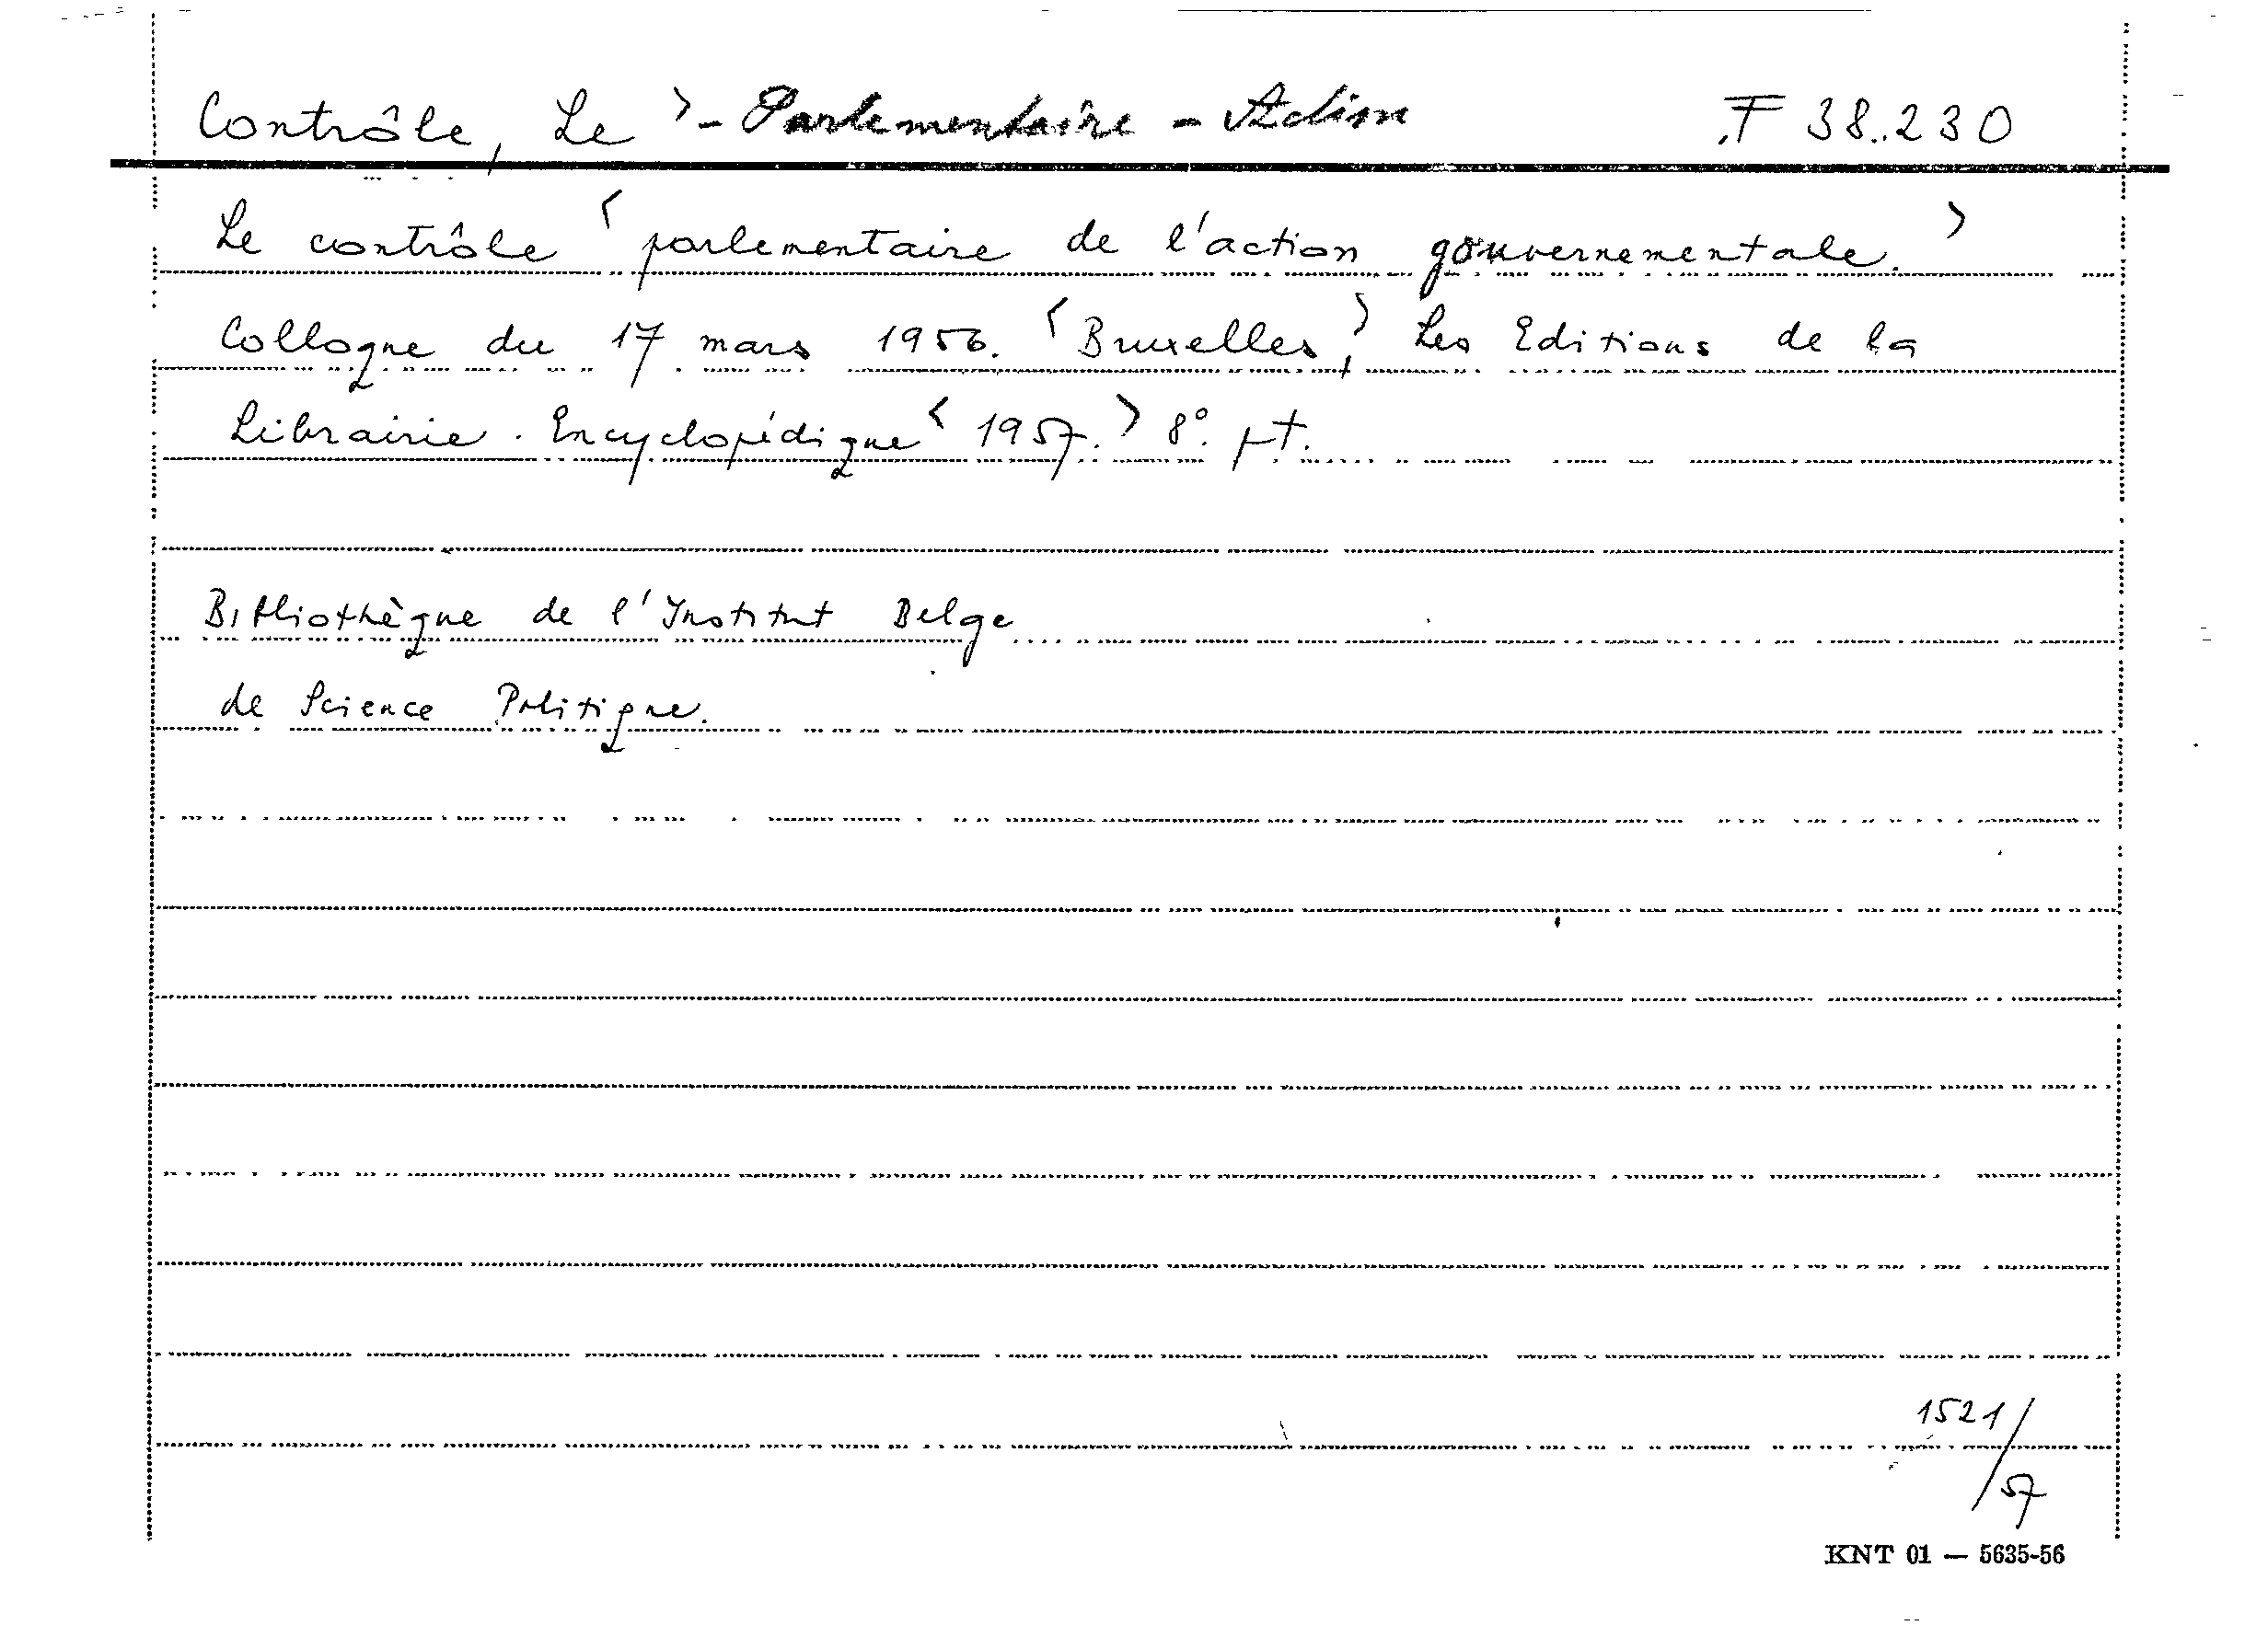 Contrôle, Le > - Parlementaire - Action F 38.230
Le contrôle < parlementaire de l'action gouvernementale. >
Colloque du 17 mars 1956. < Bruxelles, > Les Editions de la
Librairie Encyclopédique < 1957. > 8°. pt.
Bibliothèque de l'Institut Belge
de Science Politique.
1521/
57
KNT 01 — 5635-56